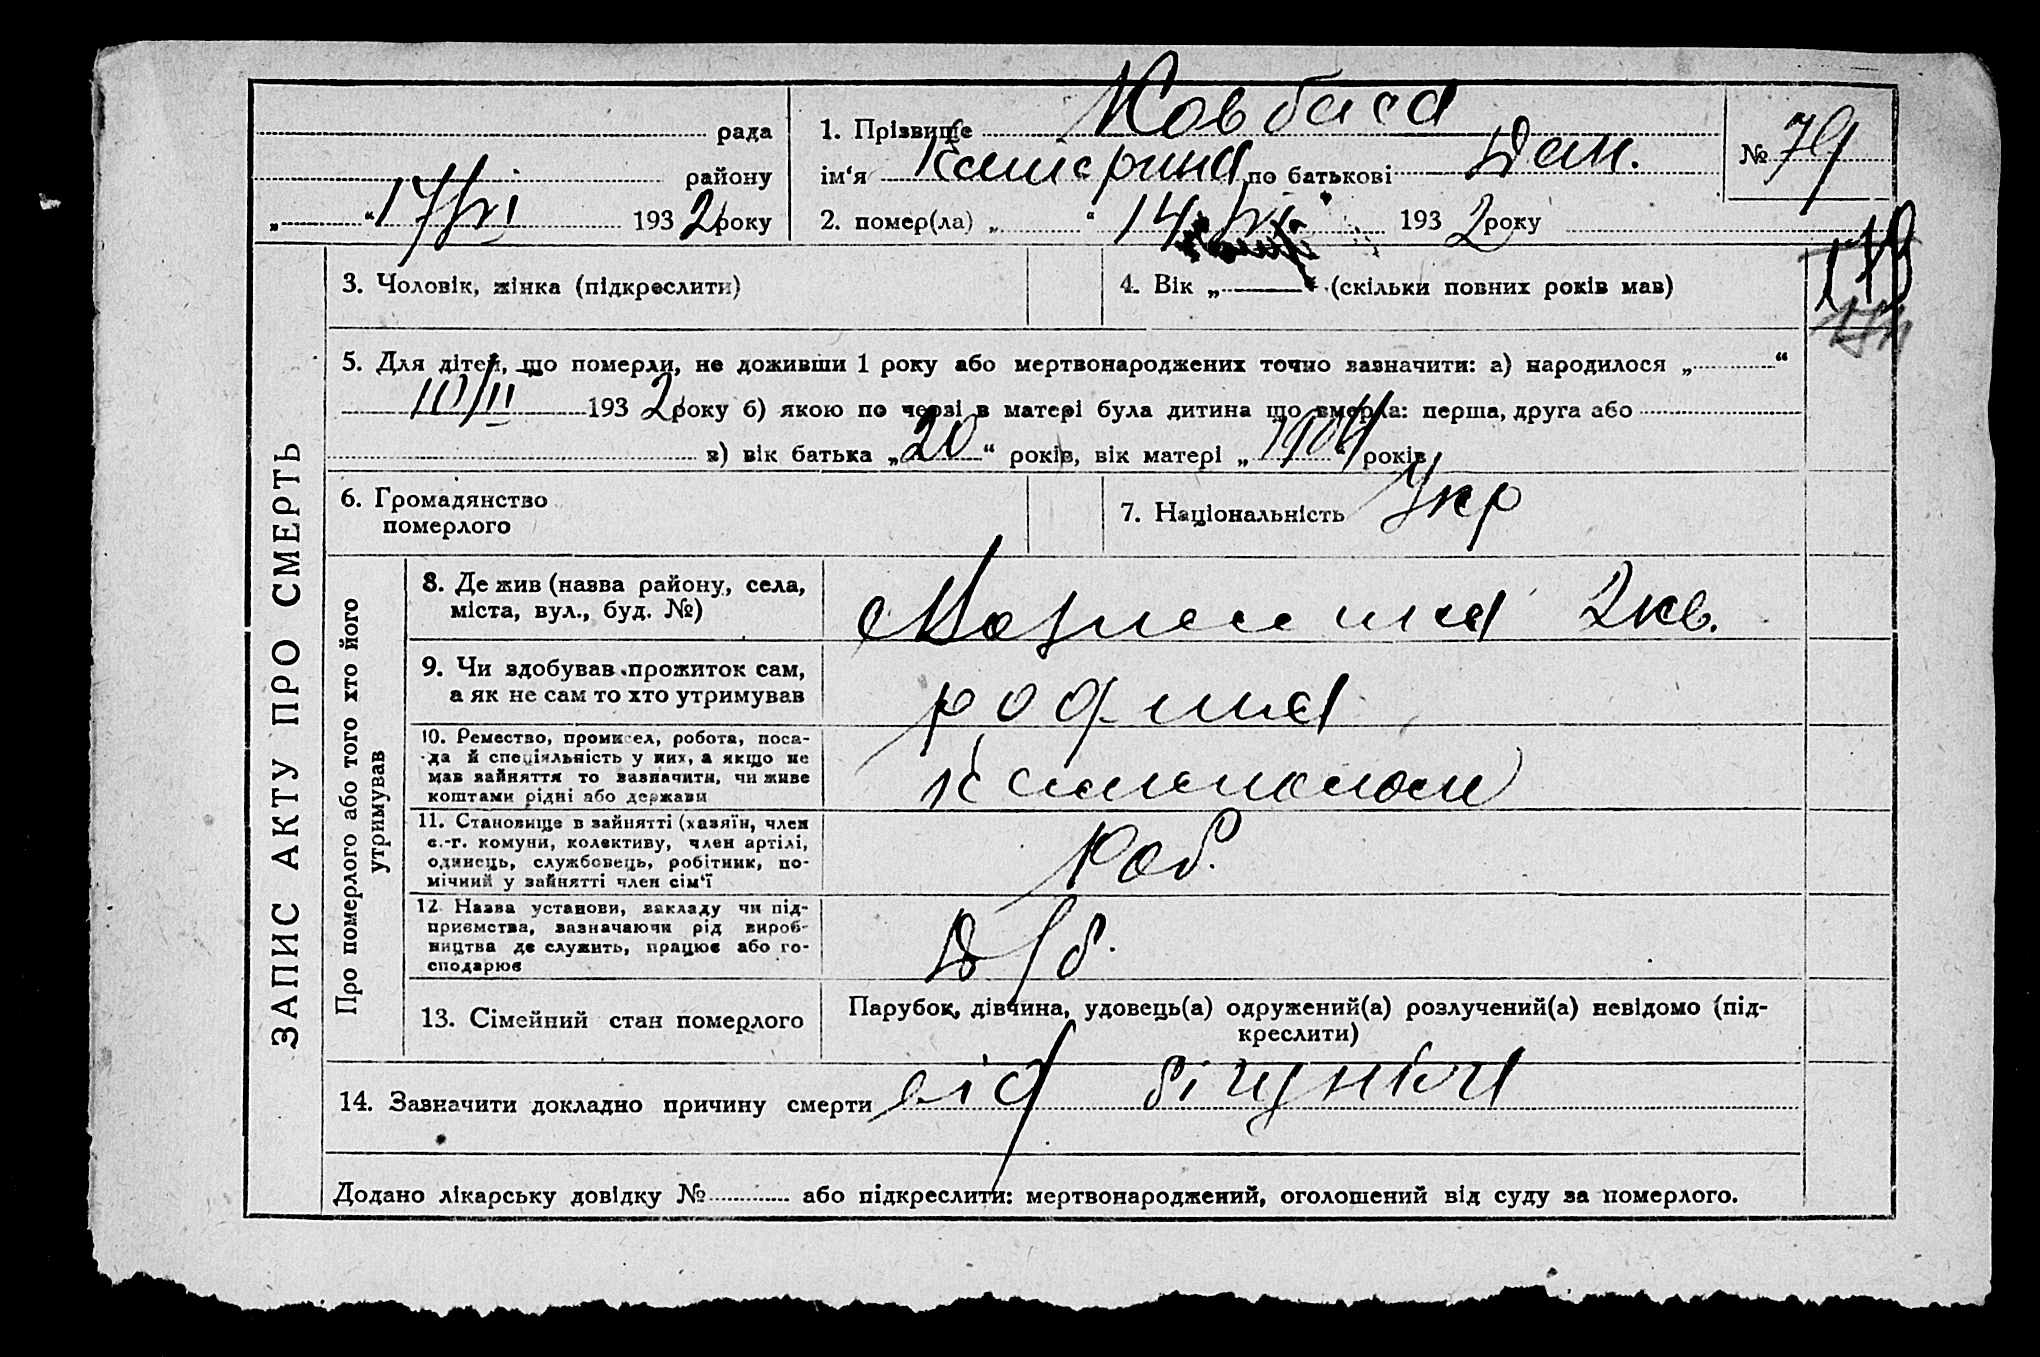 рада
району
„ “ 17/VI 1932 року
1. Прізвище Ковбаса
ім‘я Катерина по батькові Дем.
2. помер(ла) „ “ 14 VI 1932 року
№ 79
ЗАПИС АКТУ ПРО СМЕРТЬ
3. Чоловік, жінка (підкреслити)
4. Вік „ “ (скільки повних років мав)
5. Для дітей, що померли, не доживши 1 року або мертвонароджених точно зазначити: а) народилося „ “
10/II 1932 року б) якою по черзі в матері була дитина що вмерла: перша, друга або
в) вік батька „20“ років, вік матері „1904“ років
6. Громадянство
померлого
7. Національність Укр
Про померлого або того хто його
утримував
8. Де жив (назва району, села,
міста, вул., буд. №)
2 кв.
9. Чи здобував прожиток сам,
а як не сам то хто утримував
родина
10. Ремество, промисел, робота, поса-
да й спеціяльність у них, а якщо не
мав зайняття то зазначити, чи живе
коштами рідні або держави
11. Становище в зайнятті (хазяїн, член
с.-г. комуни, колективу, член артілі,
одинець, службовець, робітник, по-
мічний у зайнятті член сім‘ї
Роб.
12. Назва установи, закладу чи під-
приємства, зазначаючи рід вироб-
ництва де служить, працює або го-
сподарює
13. Сімейний стан померлого
Парубок, дівчина, удовець(а) одружений(а) розлучений(а) невідомо (під-
креслити)
14. Зазначити докладно причину смерти від бігунки
Додано лікарську довідку № або підкреслити: мертвонароджений, оголошений від суду за померлого.